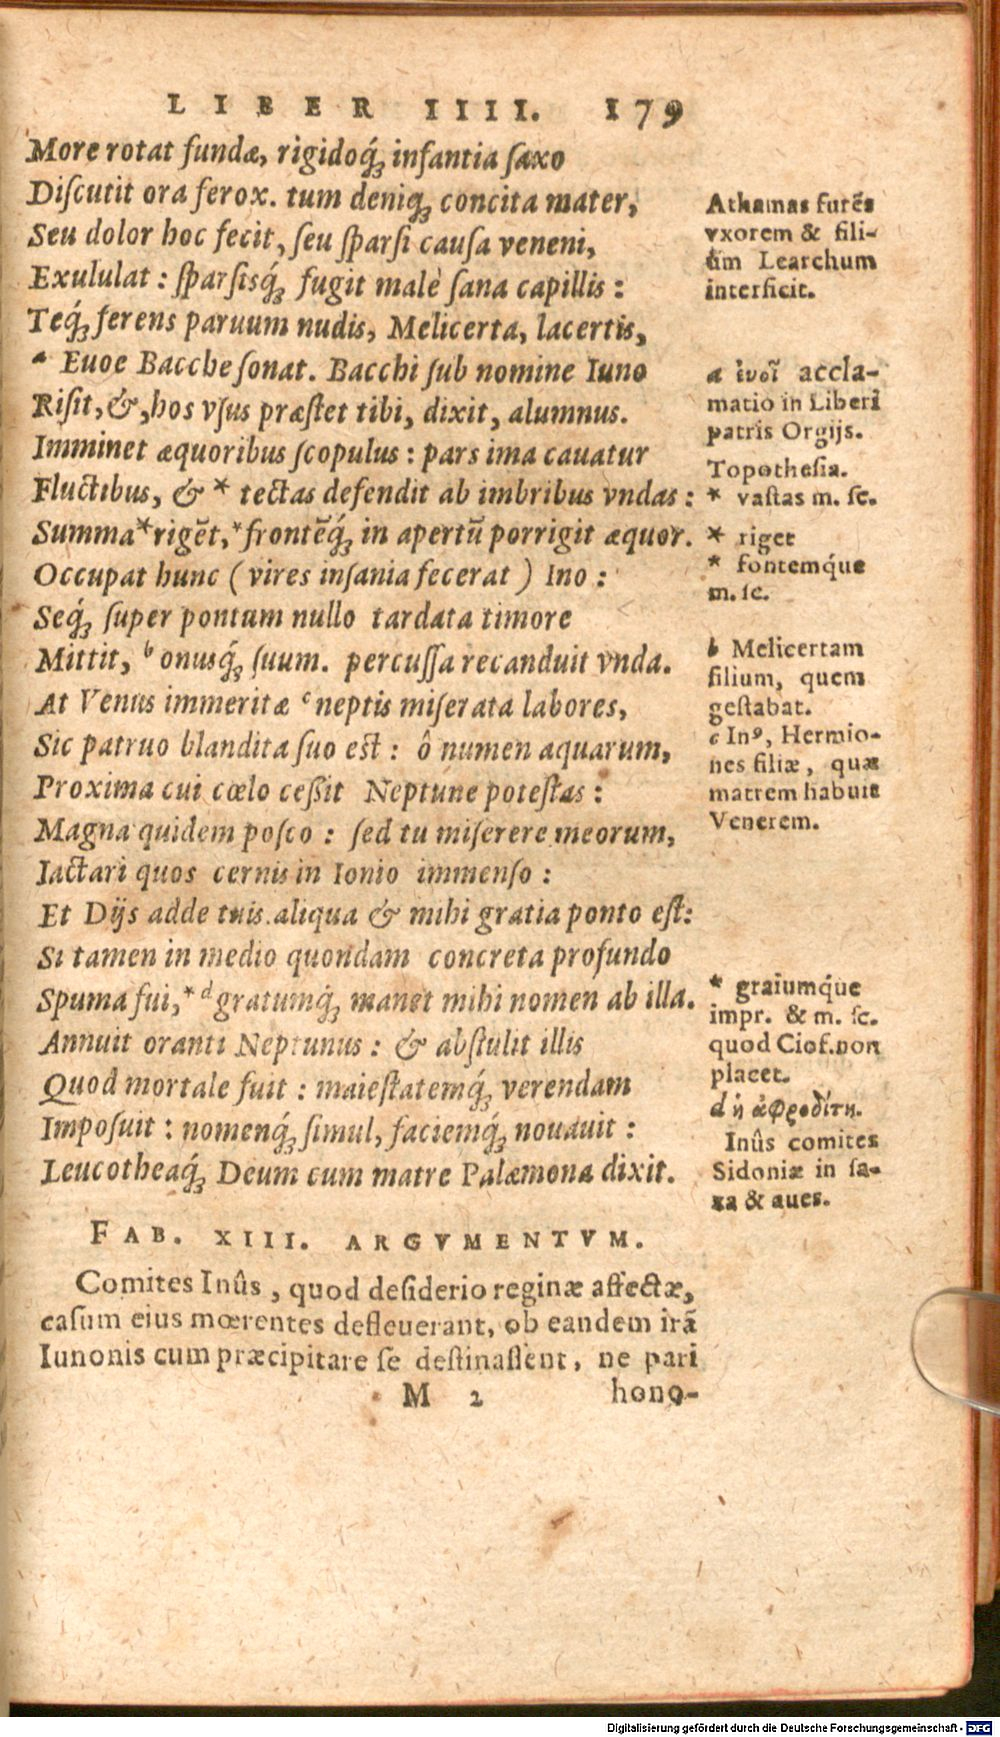 LIBER IIII. 179
More rotat fundæ, rigidoq́; infantia ſaxo
Diſcutit ora ferox. tum deniq; concita mater,
Seu dolor hoc fecit, ſeu ſparſi cauſa veneni,
Exululat : ſparſisq́; fugit malè ſana capillis :
Teq́; ferens paruum nudis, Melicerta, lacertis,
ᵃ Euoe Bacche ſonat. Bacchi ſub nomine Iuno
Riſit, &, hos vſus præſtet tibi, dixit, alumnus.
Imminet æquoribus ſcopulus : pars ima cauatur
Fluctibus, & * tectas defendit ab imbribus vndas :
Summa * rigēt, * frontēq́; in apertū porrigit æquor.
Occupat hunc ( vires inſania fecerat ) Ino :
Seq́; ſuper pontum nullo tardata timore
Mittit, ᵇ onusq́; ſuum. percuſſa recanduit vnda.
At Venus immeritæ ᶜ neptis miſerata labores,
Sic patruo blandita ſuo eſt : ô numen aquarum,
Proxima cui cœlo ceſſit Neptune poteſtas :
Magna quidem poſco : ſed tu miſerere meorum,
Iactari quos cernis in Ionio immenſo :
Et Dijs adde tuis. aliqua & mihi gratia ponto eſt:
Si tamen in medio quondam concreta profundo
Spuma fui, * ᵈ gratumq́; manet mihi nomen ab illa.
Annuit oranti Neptunus : & abſtulit illis
Quod mortale fuit : maieſtatemq́; verendam
Impoſuit : nomenq́; ſimul, faciemq́; nouauit :
Leucotheaq́; Deum cum matre Palæmona dixit.
FAB. XIII. ARGVMENTVM.
Comites Inûs, quod deſiderio reginæ affectæ,
caſum eius mœrentes defleuerant, ob eandem irā
Iunonis cum præcipitare ſe deſtinaſſent, ne pari
M 2 hono-
Athamas furēs
vxorem & fili-
úm Learchum
interficit.
a ἐυοῖ accla-
matio in Liberi
patris Orgijs.
Topotheſia.
* vaſtas m. ſc.
* riget
* fontemq́ue
m. ſc.
b Melicertam
filium, quem
geſtabat.
c Inꝰ, Hermio-
nes filiæ, quæ
matrem habuit
Venerem.
* graiumq́ue
impr. & m. ſc.
quod Ciof. non
placet.
d ἡ ἀφροδίτη.
Inûs comites
Sidoniæ in ſa-
xa & aues.
Digitalisierung gefördert durch die Deutsche Forschungsgemeinschaft - DFG